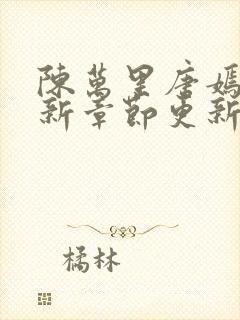 陳萬里唐嫣
新章節更新
橘林